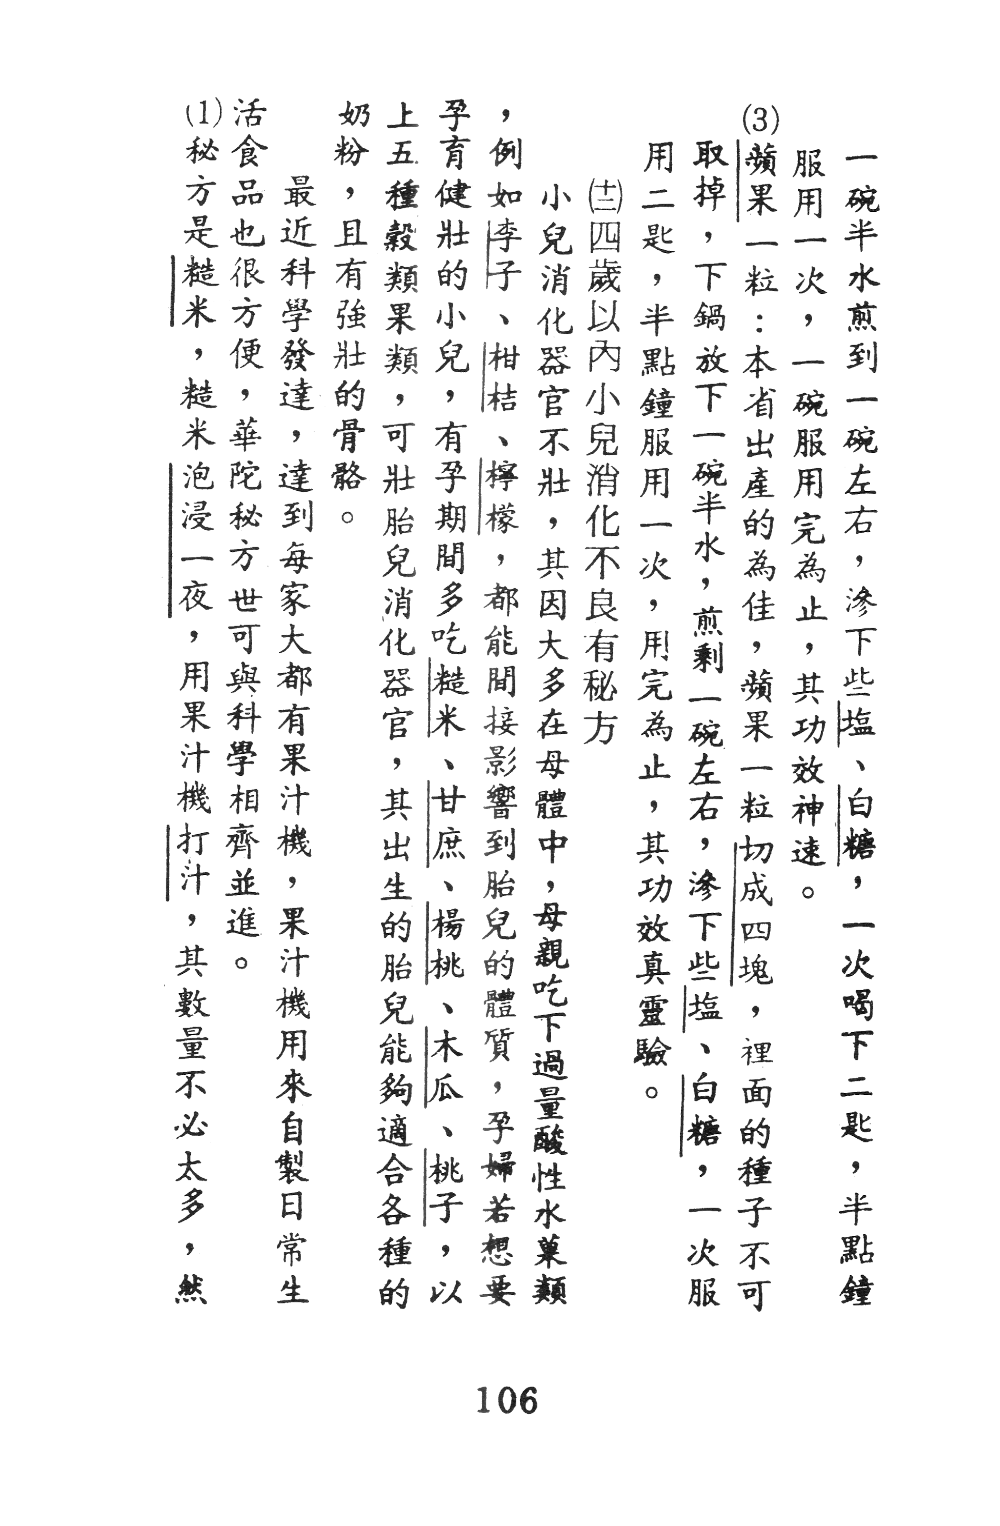 一碗半水煎到一碗左右，滲下些塩、白糖，一次喝下二匙，半點鐘
服用一次，一碗服用完為止，其功效神速。
(3)蘋果一粒：本省出產的為佳，蘋果一粒切成四塊，裡面的種子不可
取掉，下鍋放下一碗半水，煎剩一碗左右，滲下些塩、白糖，一次服
用二匙，半點鐘服用一次，用完為止，其功效真靈驗。
㈩四歲以內小兒消化不良有秘方
小兒消化器官不壯，其因大多在母體中，母親吃下過量酸性水菓類
，例如李子、柑桔、檸檬，都能間接影響到胎兒的體質，孕婦若想要
孕育健壯的小兒，有孕期間多吃糙米、甘庶、楊桃、木瓜、桃子，以
上五種穀類果類，可壯胎兒消化器官，其出生的胎兒能夠適合各種的
奶粉，且有強壯的骨骼。
最近科學發達，達到每家大都有果汁機，果汁機用來自製日常生
活食品也很方便，華陀秘方世可與科學相齊並進。
(1)秘方是糙米，糙米泡浸一夜，用果汁機打汁，其數量不必太多，然
106